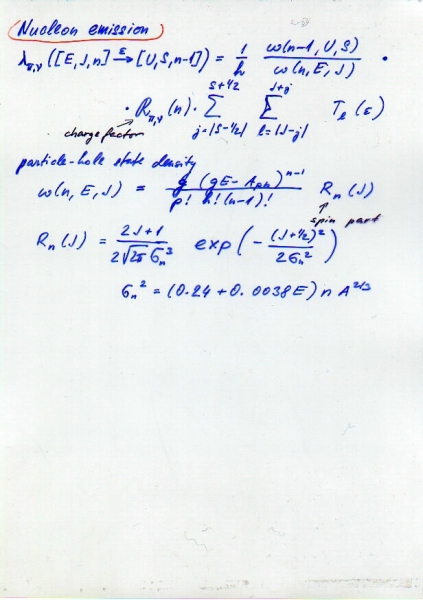 Nucleon emission
λπ,ν ([E, J, n] —ε→ [U, S, n-1]) = 1/h ω(n-1, U, S) / ω(n, E, J) ·
· Rπ,ν (n) · Σ_{j=|S-1/2|}^{S+1/2} Σ_{l=|J-j|}^{J+j} T_l (ε)
charge factor
particle-hole state density
ω(n, E, J) = g (gE - A_ph)^{n-1} / p! h! (n-1)! R_n (J)
spin part
R_n (J) = 2J+1 / 2√2π σ_n^3 exp(- (J+1/2)^2 / 2σ_n^2)
σ_n^2 = (0.24 + 0.0038E) n A^{2/3}